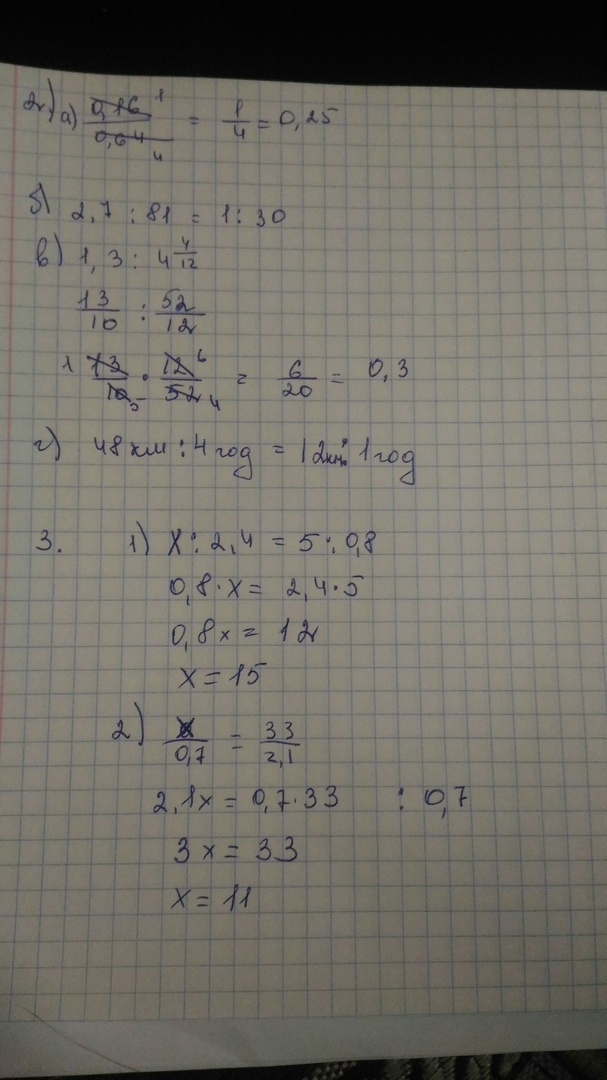 2) а) 0,16 1 / 0,64 4 = 1/4 = 0,25
б) 2,7 : 81 = 1 : 30
в) 1,3 : 4 4/12
13/10 : 52/12
1 13/10 5 · 12 6/52 4 = 6/20 = 0,3
г) 48 км : 4 год = 12км : 1 год
3. 1) x : 2,4 = 5 : 0,8
0,8 · x = 2,4 · 5
0,8x = 12
x = 15
2) x/0,7 = 33/2,1
2,1x = 0,7 · 33 : 0,7
3x = 33
x = 11